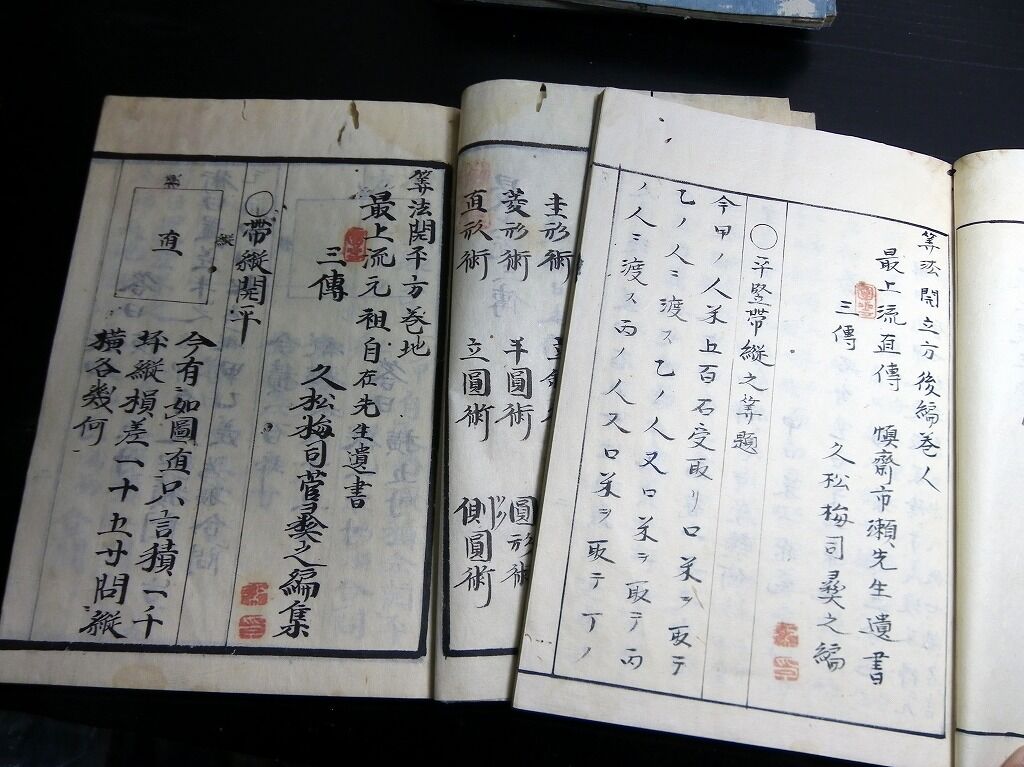 算法開立方後編巻人
最上流直傳 慎齋市瀬先生遺書
三傳 久松梅司彛之編
○平竪帶縦之筭題
今甲ノ人米五百石受取リ口米ヲ取テ
乙ノ人ニ渡ス乙ノ人又口米ヲ取テ丙
ノ人ニ渡ス丙ノ人又口米ヲ取テ丁ノ
圭形術
菱形術 半圓術 圓形術
直形術 立圓術 側圓術
筭法開平方巻地
最上流元祖自在先生遺書
三傳 久松梅司菅彛之編集
○帶縦開平
直
今有如圖直只言積一千
坪縦横差一十五廿問縦
横各幾何